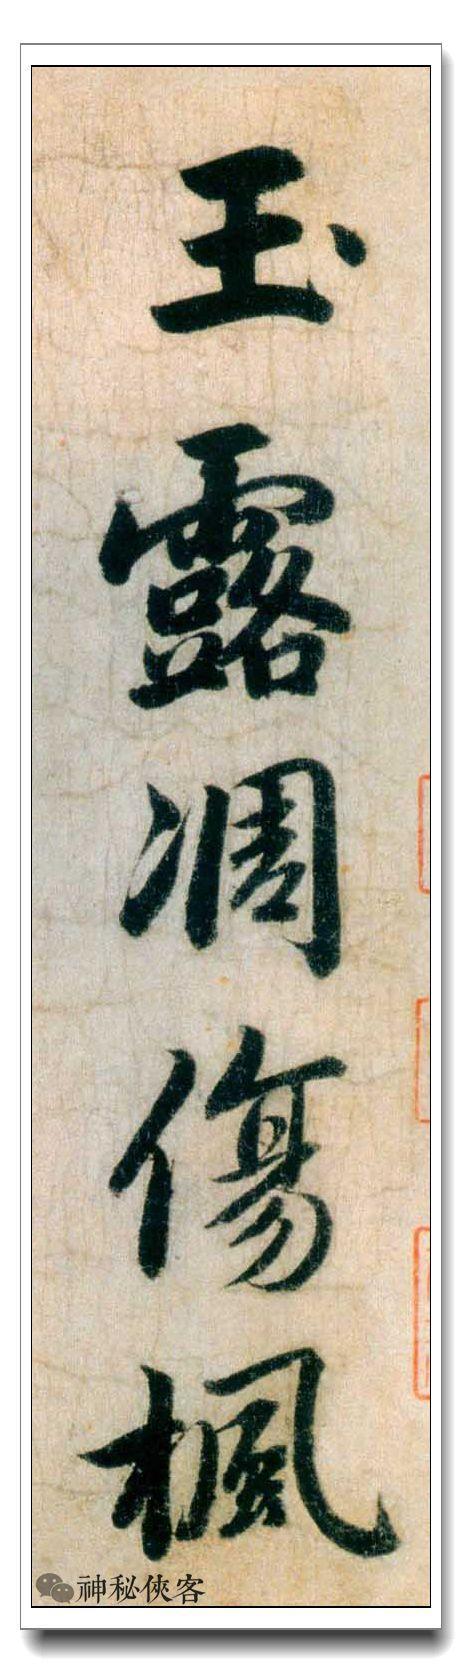 玉露凋傷楓
神秘俠客